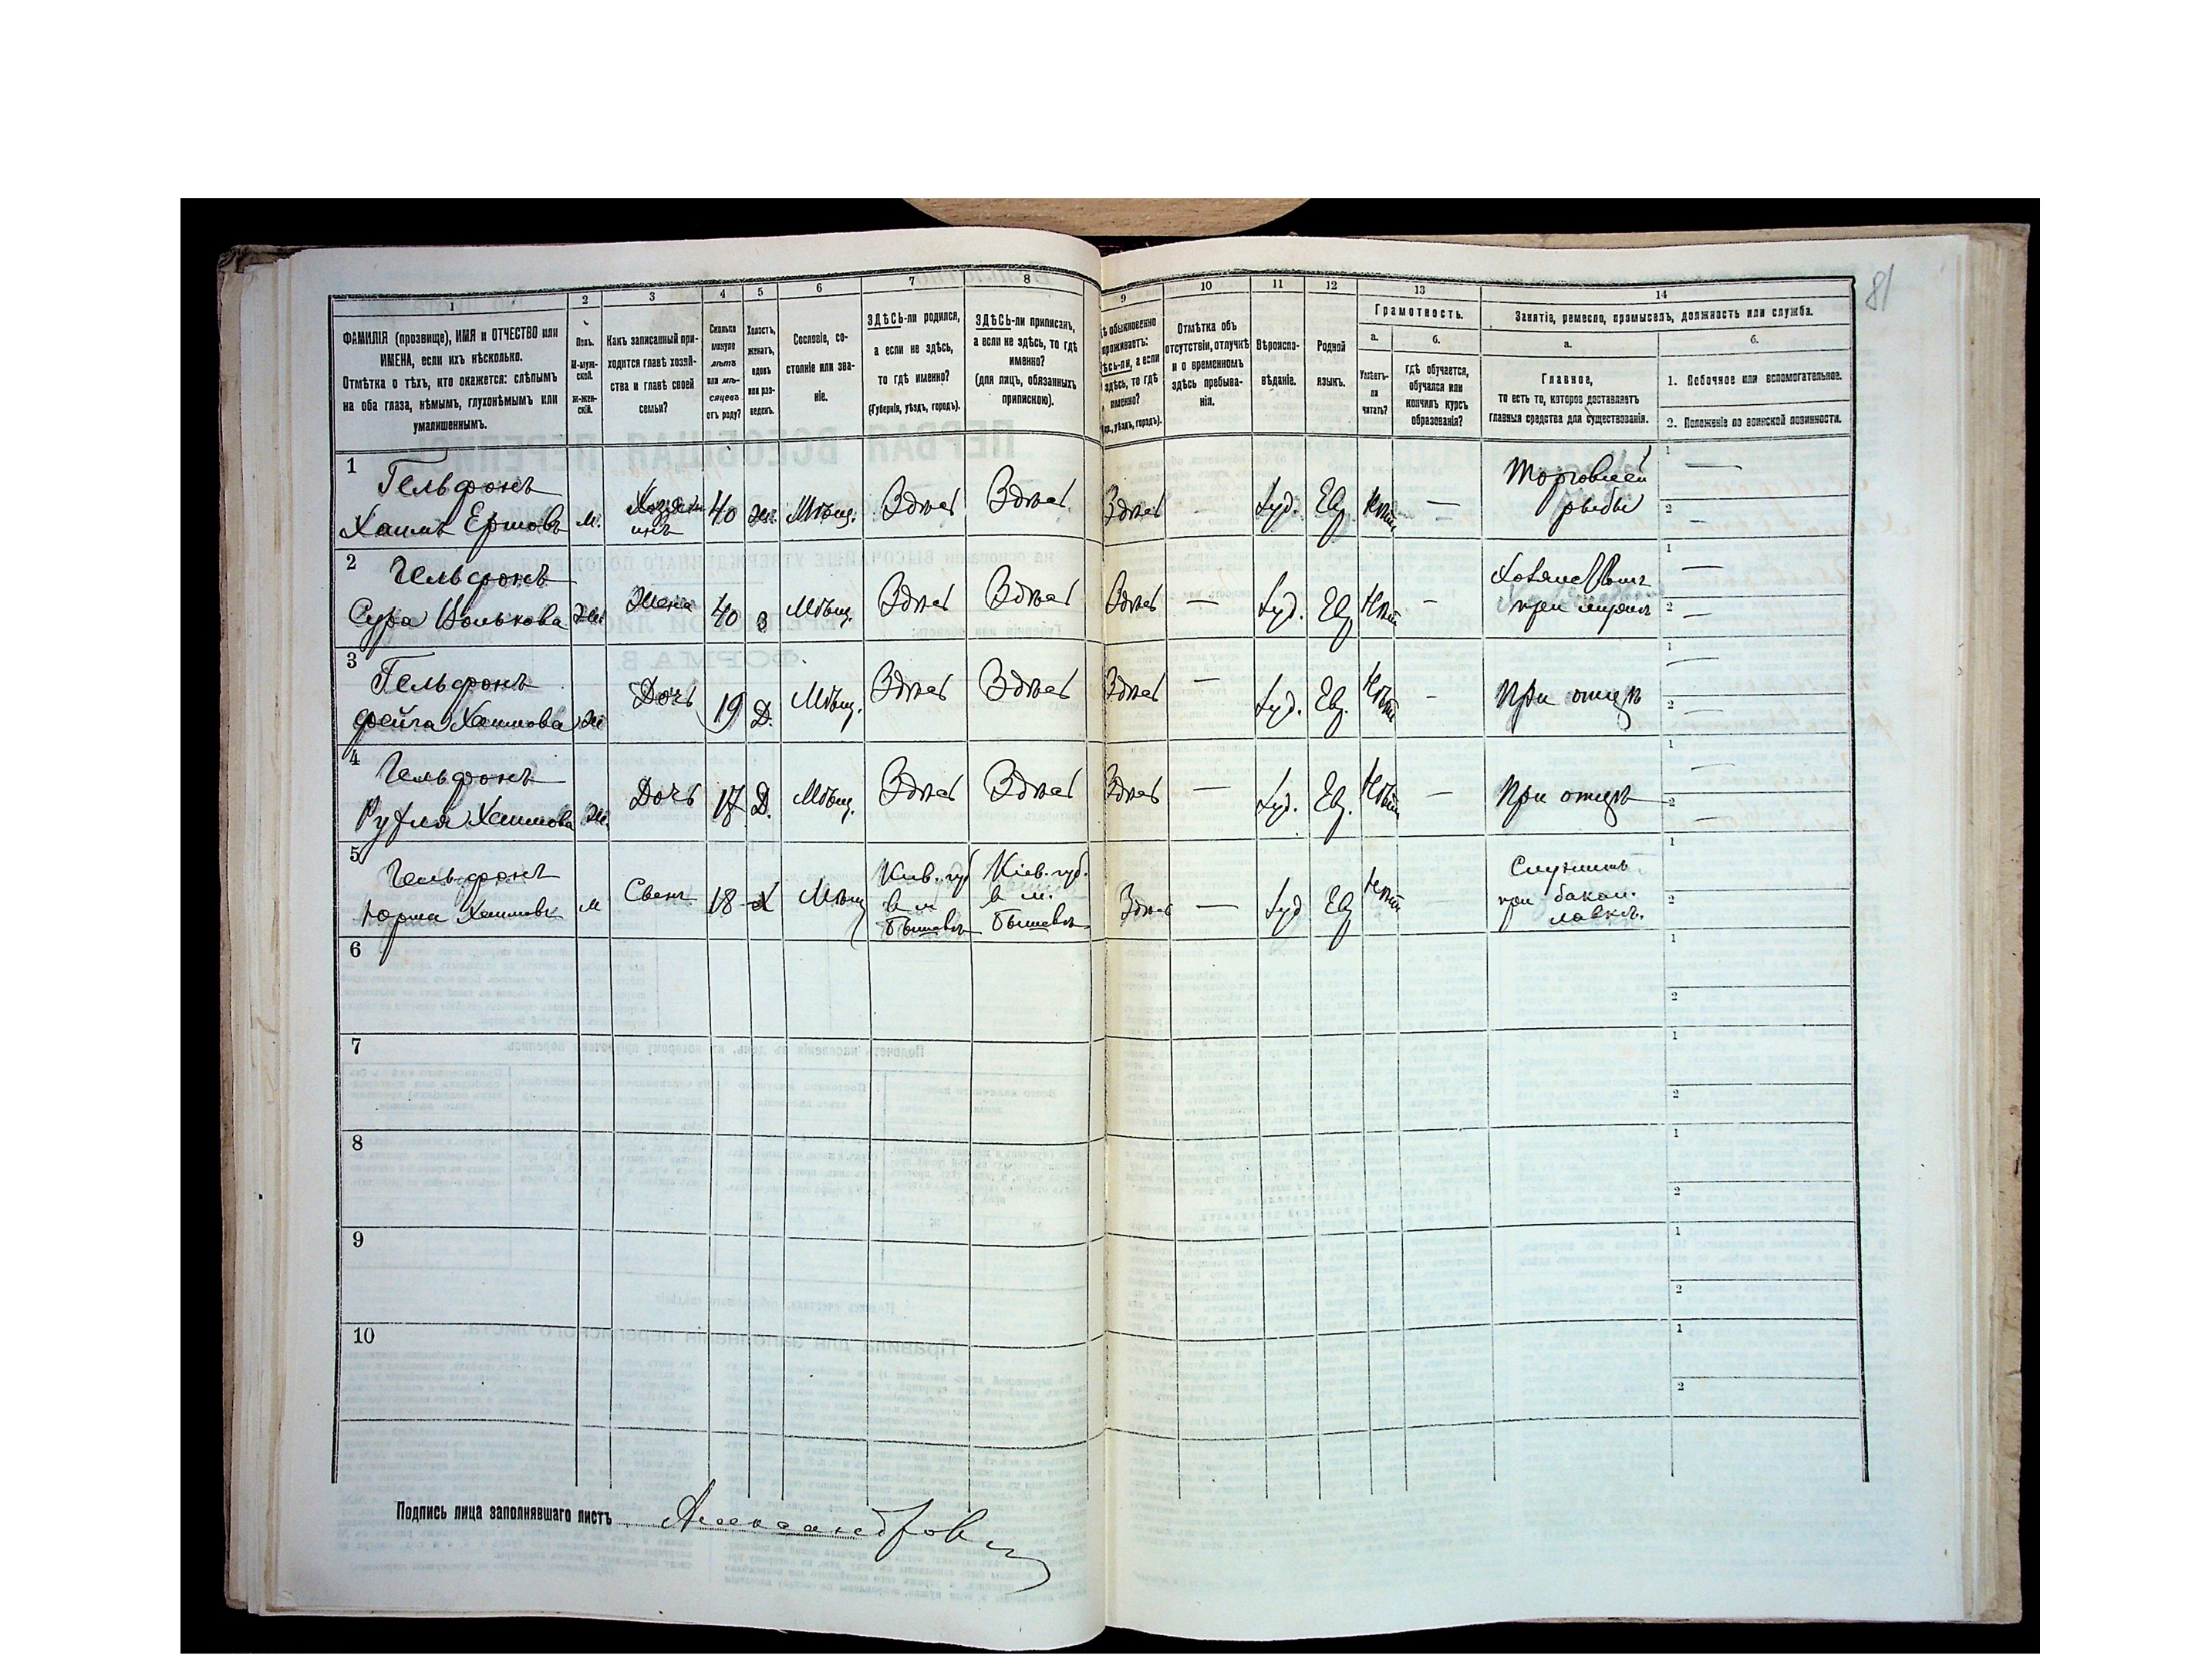 81
1 2 3 4 5 6 7 8 9 10 11 12 13 14
ФАМИЛІЯ (прозвище), ИМЯ и ОТЧЕСТВО или
ИМЕНА, если ихъ нѣсколько.
Отмѣтка о тѣхъ, кто окажется: слѣпымъ
на оба глаза, нѣмымъ, глухонѣмымъ или
умалишеннымъ.
Полъ.
М-муж-
ской.
ж-жен-
скій.
Какъ записанный при-
ходится главѣ хозяй-
ства и главѣ своей
семьи?
Сколько
минуло
лѣтъ
или мѣ-
сяцевъ
отъ роду?
Холостъ,
женатъ,
вдовъ
или раз-
веденъ.
Сословіе, со-
стояніе или зва-
ніе.
ЗДѢСЬ-ли родился,
а если не здѣсь,
то гдѣ именно?
(Губернія, уѣздъ, городъ).
ЗДѢСЬ-ли приписанъ,
а если не здѣсь, то гдѣ
именно?
(для лицъ, обязанныхъ
припискою).
обыкновенно
проживаетъ:
а если
здѣсь, то гдѣ
именно?
уѣздъ, городъ).
Отмѣтка объ
отсутствіи, отлучкѣ
и о временномъ
здѣсь пребыва-
ніи.
Вѣроиспо-
вѣданіе.
Родной
языкъ.
Грамотность.
а.
Умѣетъ-
ли
читать?
б.
гдѣ обучается,
обучался или
кончилъ курсъ
образованія?
Занятіе, ремесло, промыселъ, должность или служба.
а.
Главное,
то есть то, которое доставляетъ
главныя средства для существованія.
б.
1. Побочное или вспомогательное.
2. Положеніе по воинской повинности.
1 Гельфонъ
Хаимъ М. 40 жен. Мѣщ. Здѣсь Здѣсь Здѣсь Іуд. Евр. Нѣтъ — Торговлей
рыбы
1 —
2
2 Гельфонъ
Сура Волькова Ж. Жена 40 З Мѣщ. Здѣсь Здѣсь Здѣсь — Іуд. Евр. Нѣтъ —
при мужѣ
1 —
2 —
3 Гельфонъ
Фейга Хаимова Ж Дочь 19 Д. Мѣщ. Здѣсь Здѣсь Здѣсь — Іуд. Евр. Нѣтъ — При отцѣ
1 —
2 —
4 Гельфонъ
Рухля Хаимова Ж. Дочь 17 Д. Мѣщ. Здѣсь Здѣсь Здѣсь — Іуд. Евр. Нѣтъ — При отцѣ
1 —
2 —
5 Гельфонъ
Хаимовъ М 18 Х Мѣщ Кіев. губ Кіев. губ. Здѣсь — Іуд Евр Нѣтъ Служитъ
в м. в м. при бакал.
лавкѣ.
1
2
6
1
2
7
1
2
8
1
2
9
1
2
10
1
2
Подпись лица заполнявшаго листъ